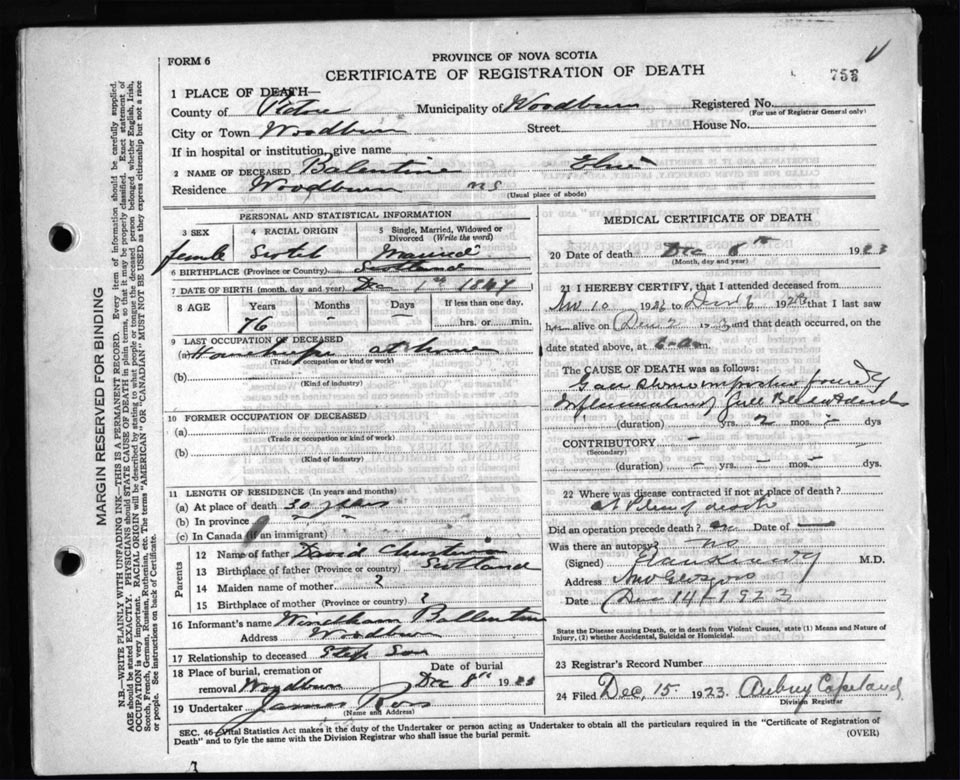 PROVINCE OF NOVA SCOTIA
FORM 6
CERTIFICATE OF REGISTRATION OF DEATH
753
1 PLACE OF DEATH—
County of Pictou Municipality of Woodburn Registered No.
(For use of Registrar General only)
City or Town Woodburn Street House No.
If in hospital or institution, give name
2 NAME OF DECEASED Balentine
Residence Woodburn NS
(Usual place of abode)
PERSONAL AND STATISTICAL INFORMATION
3 SEX 4 RACIAL ORIGIN 5 Single, Married, Widowed or Divorced (Write the word)
female Scotch Married
6 BIRTHPLACE (Province or Country) Scotland
7 DATE OF BIRTH (month, day and year) Dec 1st 1847
8 AGE Years Months Days If less than one day,
76 - - hrs. or min.
9 LAST OCCUPATION OF DECEASED
(a) at home
(Trade, occupation or kind or work)
(b)
(Kind of industry)
10 FORMER OCCUPATION OF DECEASED
(a)
(Trade or occupation or kind of work)
(b)
(Kind of industry)
11 LENGTH OF RESIDENCE (In years and months)
(a) At place of death 30 years
(b) In province
(c) In Canada (if an immigrant)
Parents
12 Name of father David
13 Birthplace of father (Province or country) Scotland
14 Maiden name of mother ?
15 Birthplace of mother (Province or country) ?
16 Informant's name Ballentine
Address Woodburn
17 Relationship to deceased Step Son
18 Place of burial, cremation or removal Woodburn
Date of burial Dec 8th 1923
19 Undertaker James Ross
(Name and Address)
MEDICAL CERTIFICATE OF DEATH
20 Date of death Dec 6th 1923
(Month, day and year)
21 I HEREBY CERTIFY, that I attended deceased from
Nov 10 192 to 192 that I last saw
h alive on Dec 2 and that death occurred, on
date stated above, at 6 a.m.
The CAUSE OF DEATH was as follows:
Gall Stone
Inflammation of Gall Bladder
(duration) yrs. 2 mos. - dys
CONTRIBUTORY -
(Secondary)
(duration) - yrs. - mos. - dys.
22 Where was disease contracted if not at place of death?
death
Did an operation precede death? no Date of —
Was there an autopsy? no
(Signed) M.D.
Address New Glasgow
Date Dec 14 1923
State the Disease causing Death, or in death from Violent Causes, state (1) Means and Nature of Injury, (2) whether Accidental, Suicidal or Homicidal.
23 Registrar's Record Number
24 Filed Dec, 15. 1923. Aubrey Copeland,
Division Registrar
SEC. 46 Vital Statistics Act makes it the duty of the Undertaker or person acting as Undertaker to obtain all the particulars required in the "Certificate of Registration of
Death" and to fyle the same with the Division Registrar who shall issue the burial permit.
(OVER)
MARGIN RESERVED FOR BINDING
N.B.—WRITE PLAINLY WITH UNFADING INK—THIS IS A PERMANENT RECORD. Every item of information should be carefully supplied.
AGE should be stated EXACTLY. PHYSICIANS should STATE CAUSE OF DEATH in plain terms, so that it may be properly classified. Exact statement of
OCCUPATION is very important. RACIAL ORIGIN will be described by stating to what people or tongue the deceased person belonged whether English, Irish,
Scotch, French, German, Russian, Ruthenian, etc. The terms "AMERICAN" or "CANADIAN" MUST NOT BE USED as they express citizenship but not a race
or people. See instructions on back of Certificate.